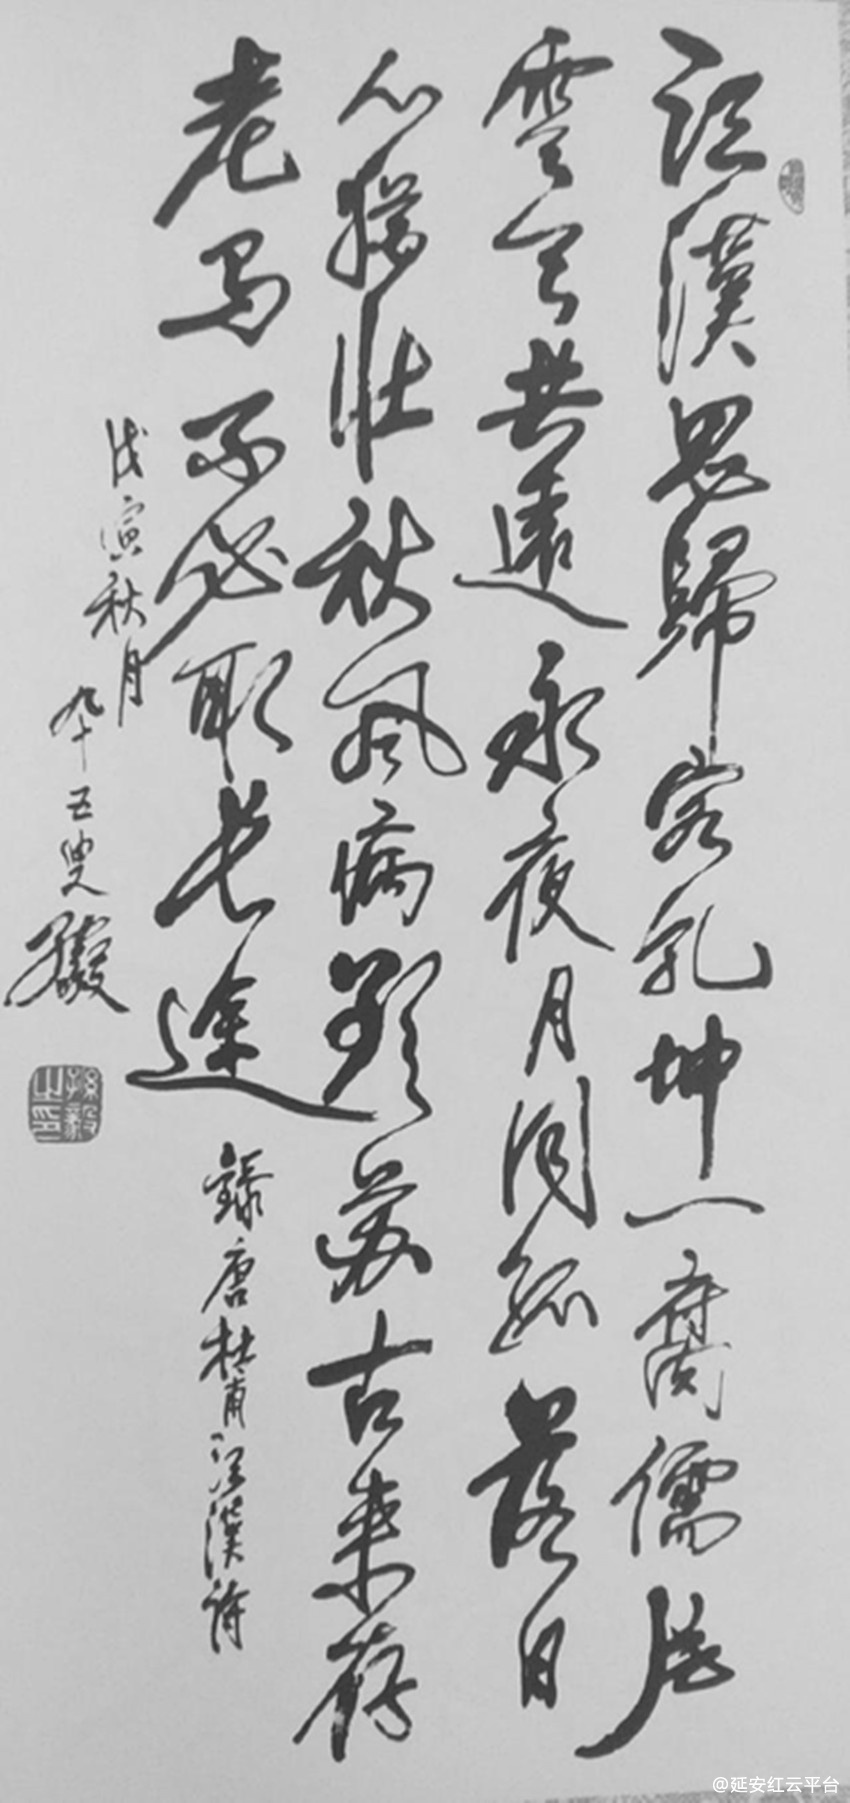 江漢思歸客乾坤一腐儒片
雲天共遠永夜月同孤落日
心猶壯秋風病欲蘇古來存
老馬不必取長途
錄唐杜甫江漢詩
戊寅秋月
九十五叟孫毅
孫毅之印
@延安红云平台